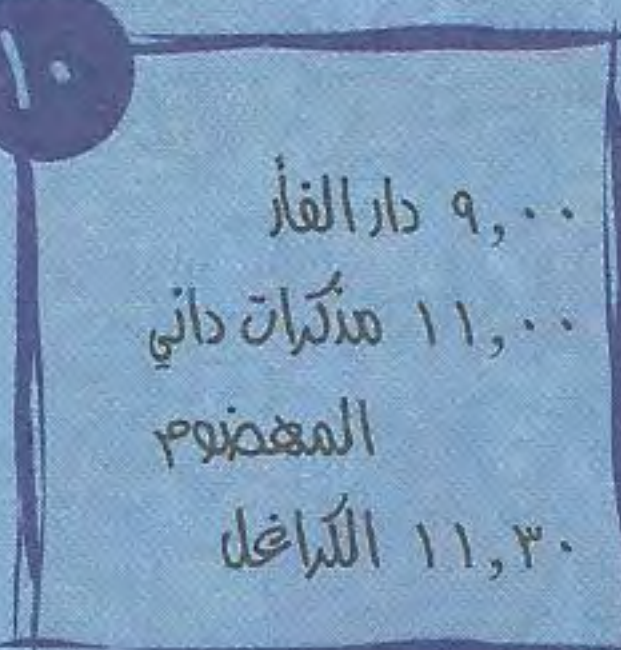 ١٠
٩,٠٠ دار الفأر
١١,٠٠ مذكرات داني
المهضوم
١١,٣٠ الكراغل